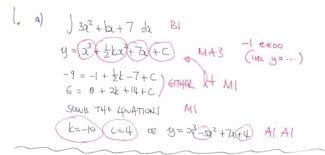 1. a) ∫ 3x² + kx + 7 dx B1
y = x³ + ½kx² + 7x + C MA3 -1 eeoo
(inc y = ...)
-9 = -1 + ½k - 7 + C
6 = 8 + 2k + 14 + C EITHER M1
SOLVE THE EQUATIONS M1
k = -10 C = 4 or y = x³ - 5x² + 7x + 4 A1 A1